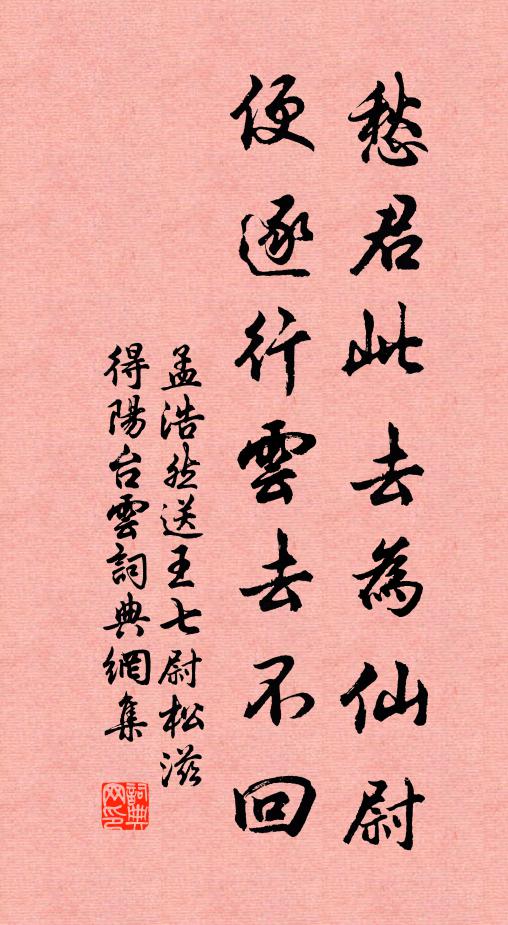 愁君此去為仙尉
便逐行雲去不回
孟浩然送王七尉松滋
得陽台雲詞典網集
詞典网印